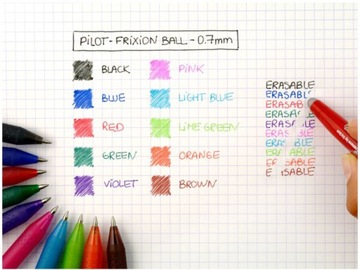 PILOT - FRIXION BALL - 0.7mm
BLACK
BLUE
RED
GREEN
VIOLET
PINK
LIGHT BLUE
LIME GREEN
ORANGE
BROWN
ERASABLE
ERASABL
ERASAB
ERASA
ERAS LE
ERAS BLE
ERA BLE
ER ABLE
E SABLE
E SABLE